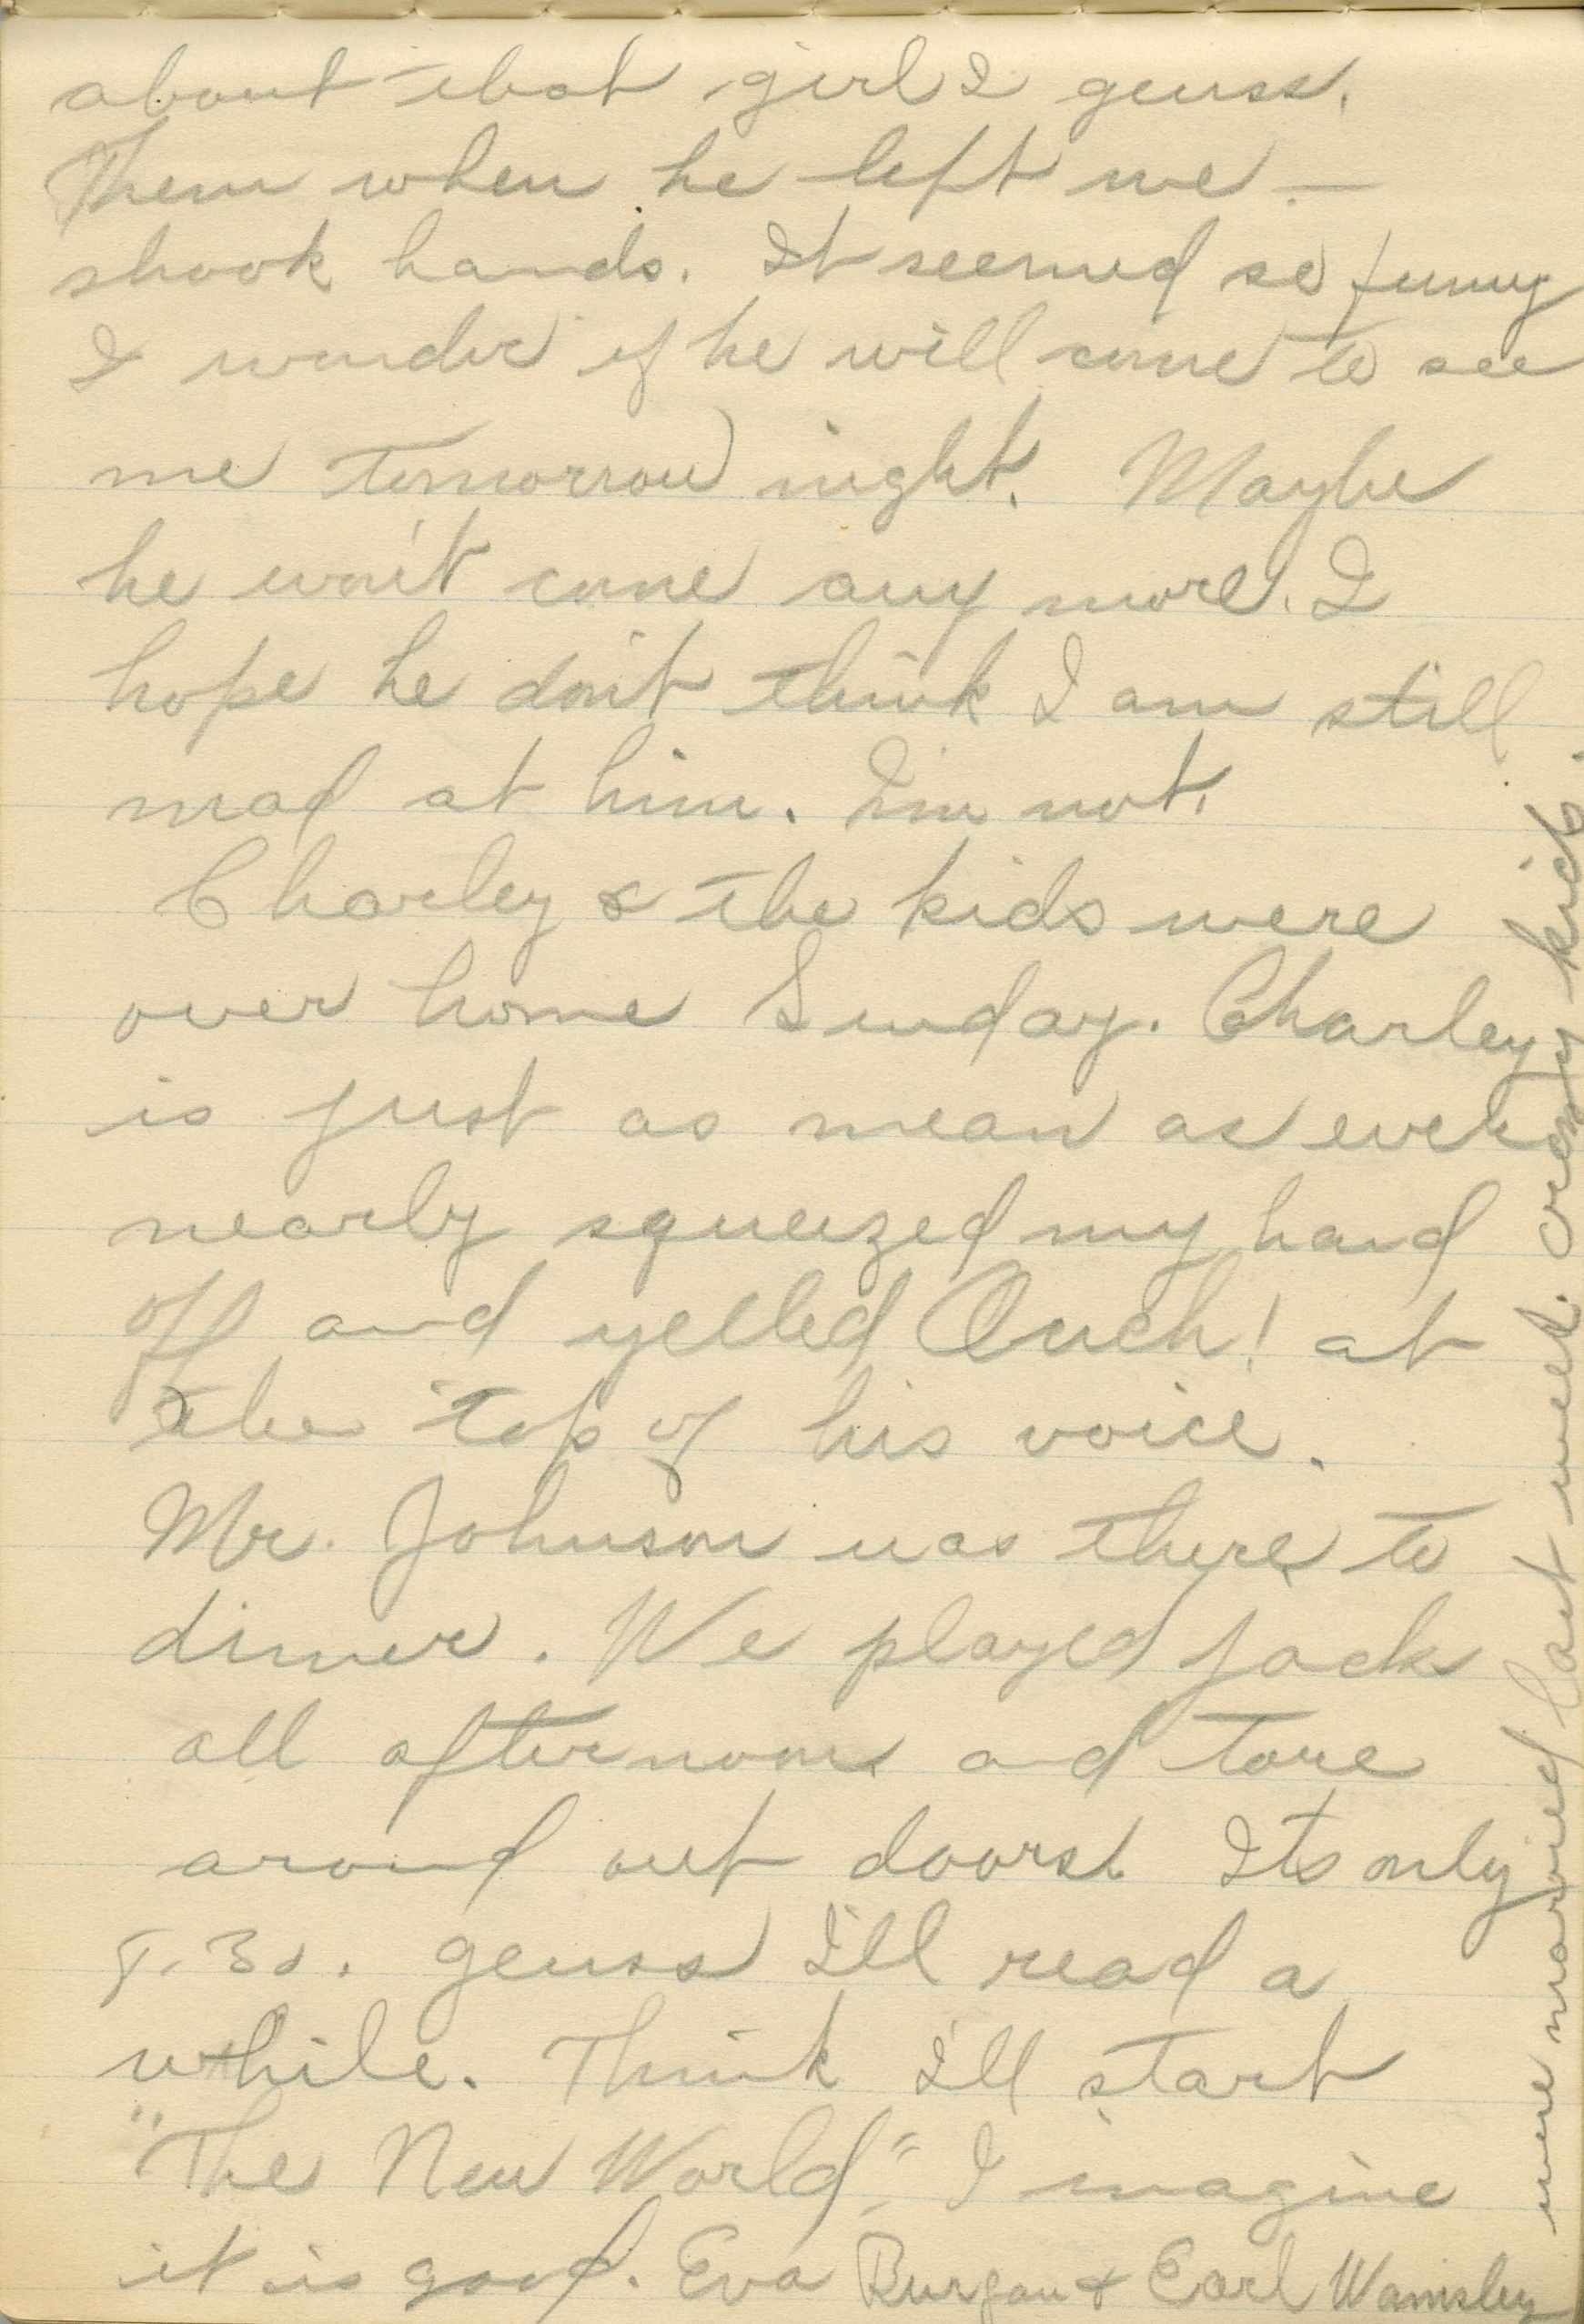 about that girl I geuss.
Then when he left we —
shook hands. It seemed so funny
I wonder if he will come to see
me tomorrow night. Maybe
he won't come any more. I
hope he don't think I am still
mad at him. I'm not.
Charley & the kids were
over home Sunday. Charley
is just as mean as ever
nearly squeezed my hand
off and yelled Ouch! at
the top of his voice.
Mr. Johnson was there to
dinner. We played jack
all afternoon and tore
around out doors. Its only
8.30. geuss I'll read a
while. Think I'll start
"The New World." I imagine
it is good. Eva Burgan & Earl Wamsley
were married last week. crazy kids.